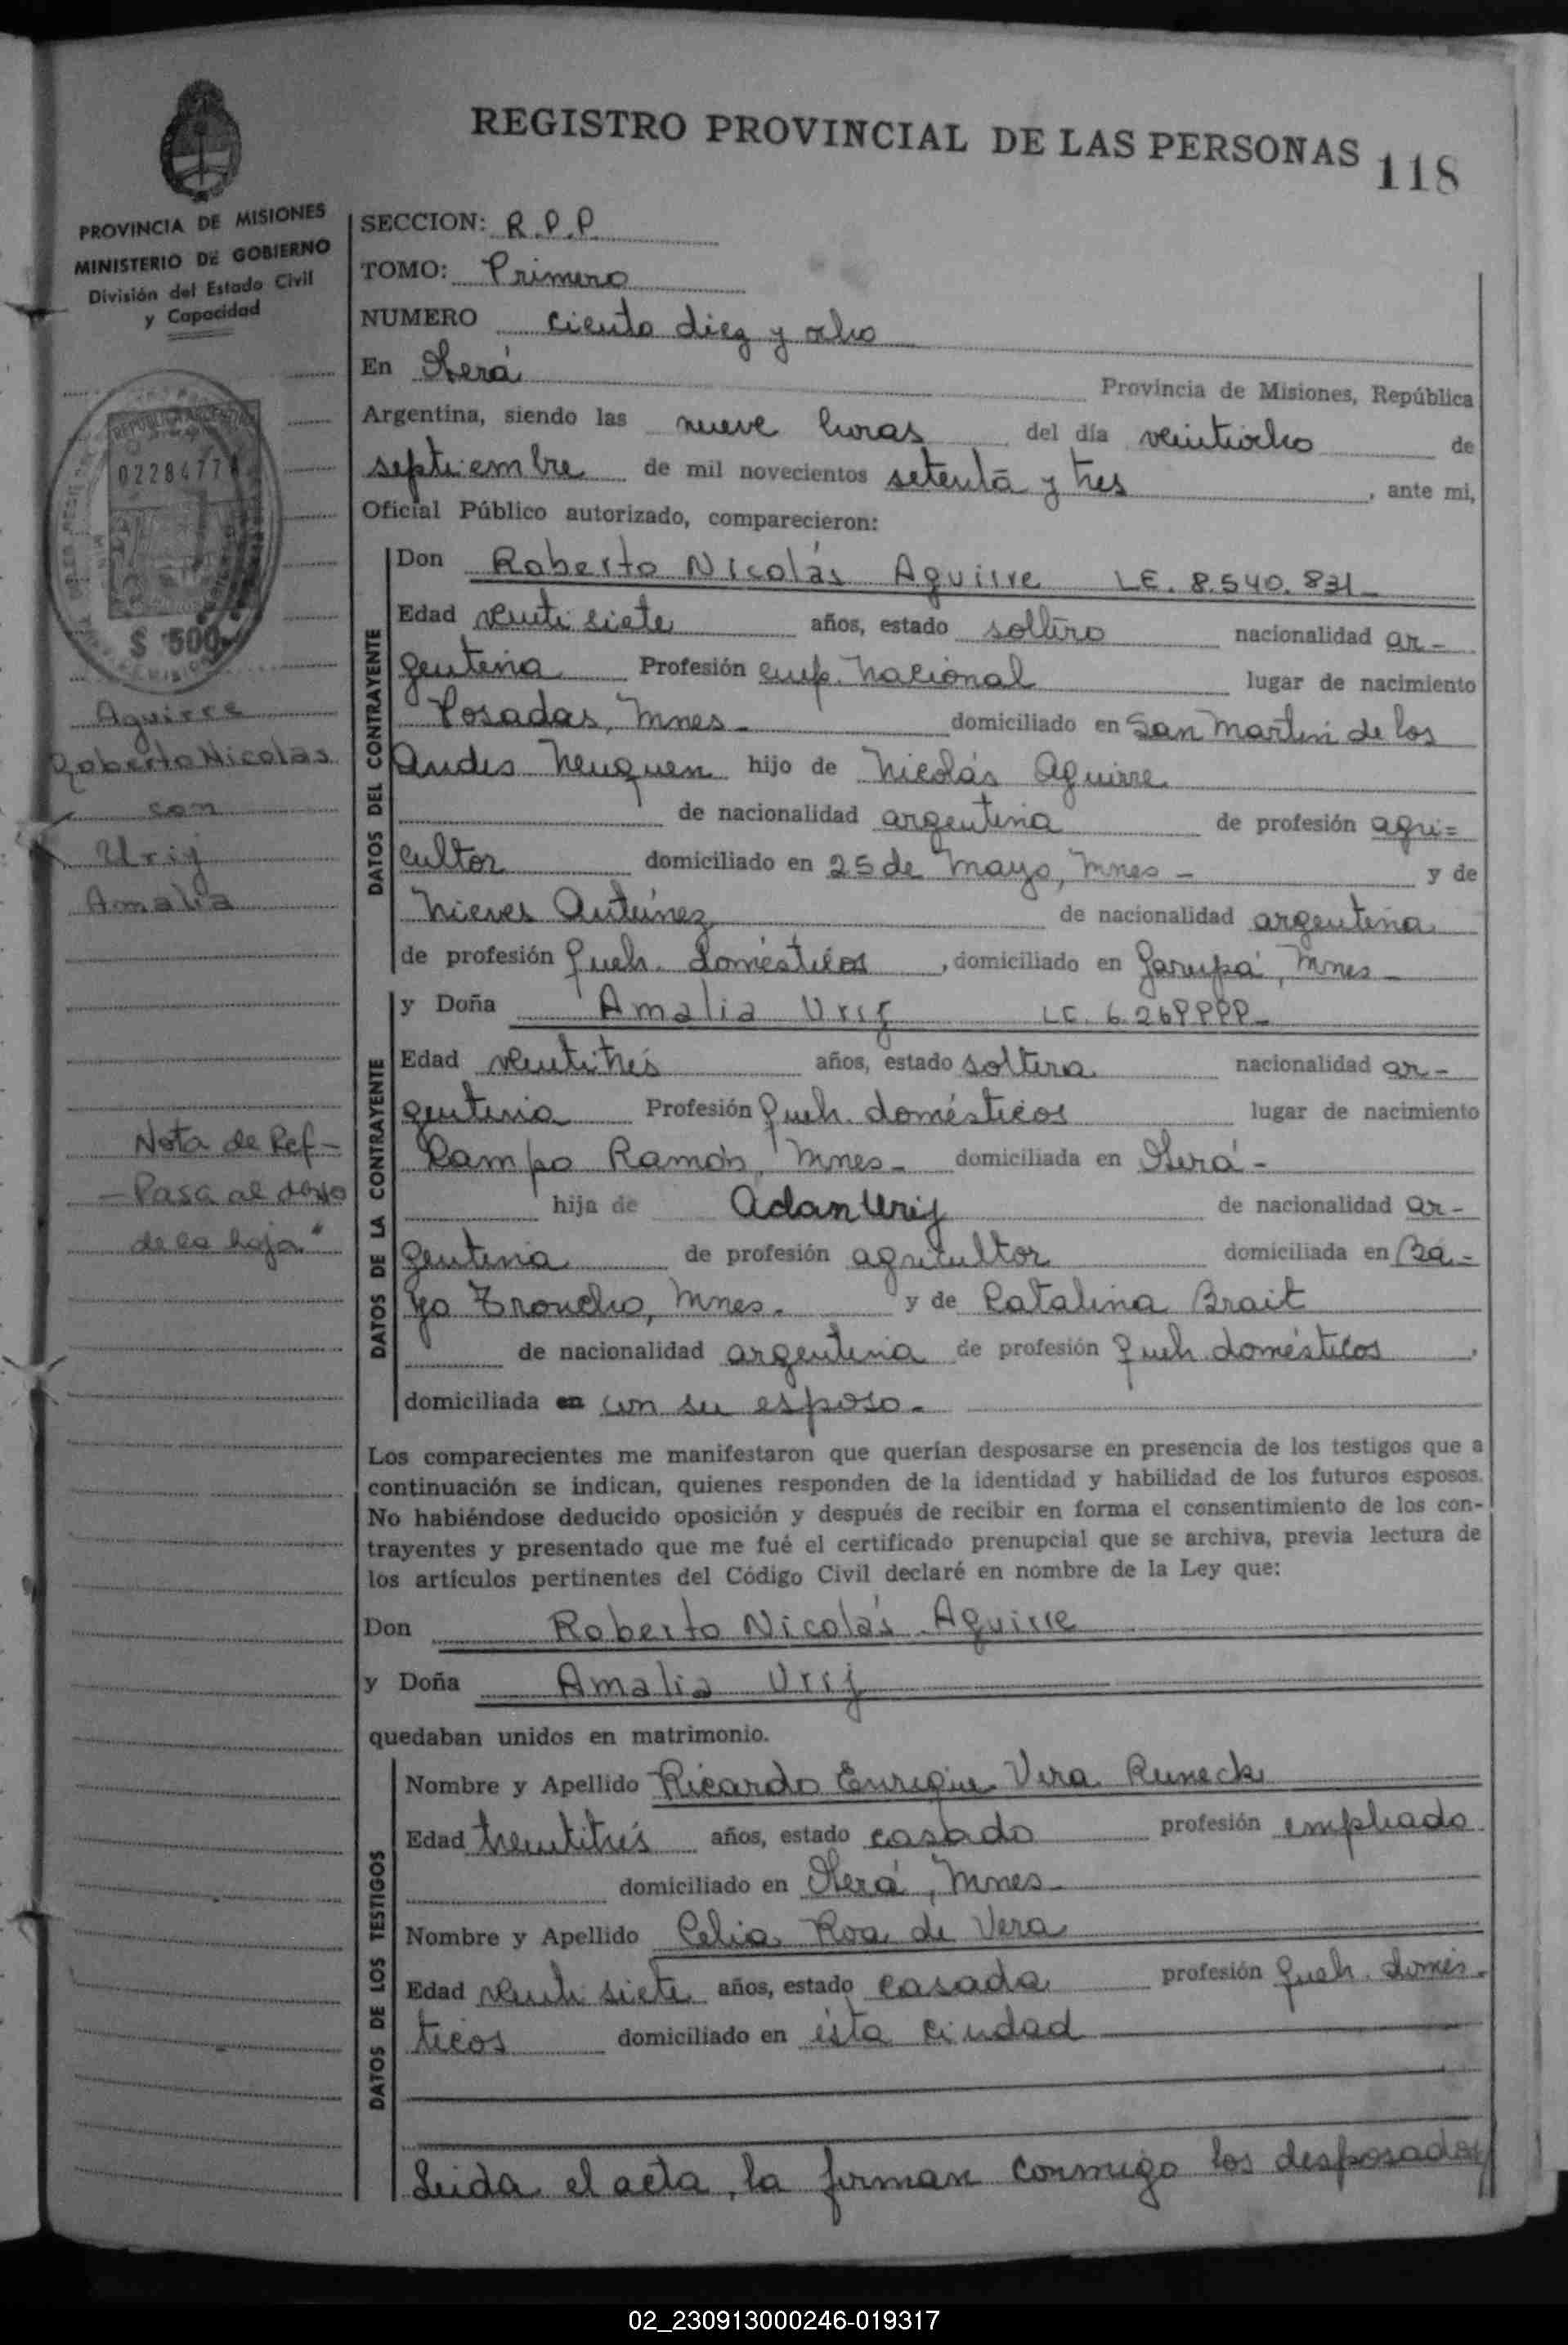 REGISTRO PROVINCIAL DE LAS PERSONAS 118
PROVINCIA DE MISIONES
MINISTERIO DE GOBIERNO
División del Estado Civil
y Capacidad
REPUBLICA ARGENTINA
$ 500
Aguirre
Roberto Nicolas
con
Urij
Amalia
Nota de Ref-
-Pasa al dorso
de la hoja"
SECCION: R.P.P
TOMO: Primero
NUMERO ciento diez y ocho
En Oberá Provincia de Misiones, República
Argentina, siendo las nueve horas del día veintiocho de
septiembre de mil novecientos setenta y tres, ante mi,
Oficial Público autorizado, comparecieron:
DATOS DEL CONTRAYENTE
Don Roberto Nicolás Aguirre LE. 8.540.831-
Edad veintisiete años, estado soltero nacionalidad ar-
gentina Profesión emp. Nacional lugar de nacimiento
Posadas, Mnes- domiciliado en San Martin de los
Andes Neuquen hijo de Nicolás Aguirre
de nacionalidad argentina de profesión agri=
cultor domiciliado en 25 de Mayo, Mnes - y de
Nieves Antúnez de nacionalidad argentina
de profesión queh. domésticos, domiciliado en Garupá, Mnes-
DATOS DE LA CONTRAYENTE
y Doña Amalia Urij LC. 6.269
Edad veintitrés años, estado soltera nacionalidad ar-
gentina Profesión queh. domésticos lugar de nacimiento
Campo Ramón, Mnes- domiciliada en Oberá-
hija de Adan Urij de nacionalidad ar-
gentina de profesión agricultor domiciliada en Ba-
yo Troncho, Mnes. y de Catalina Brait
de nacionalidad argentina de profesión queh. domésticos,
domiciliada en con su esposo.
Los comparecientes me manifestaron que querían desposarse en presencia de los testigos que a
continuación se indican, quienes responden de la identidad y habilidad de los futuros esposos.
No habiéndose deducido oposición y después de recibir en forma el consentimiento de los con-
trayentes y presentado que me fué el certificado prenupcial que se archiva, previa lectura de
los artículos pertinentes del Código Civil declaré en nombre de la Ley que:
Don Roberto Nicolás Aguirre
y Doña Amalia Urij
quedaban unidos en matrimonio.
DATOS DE LOS TESTIGOS
Nombre y Apellido Ricardo Enrique Vera Runeck
Edad treintitrés años, estado casado profesión empleado
domiciliado en Oberá, Mnes-
Nombre y Apellido Celia Roa de Vera
Edad veintisiete años, estado casada profesión queh. domés-
ticos domiciliado en ésta ciudad
Leida el acta, la firman conmigo los desposados
02_230913000246-019317